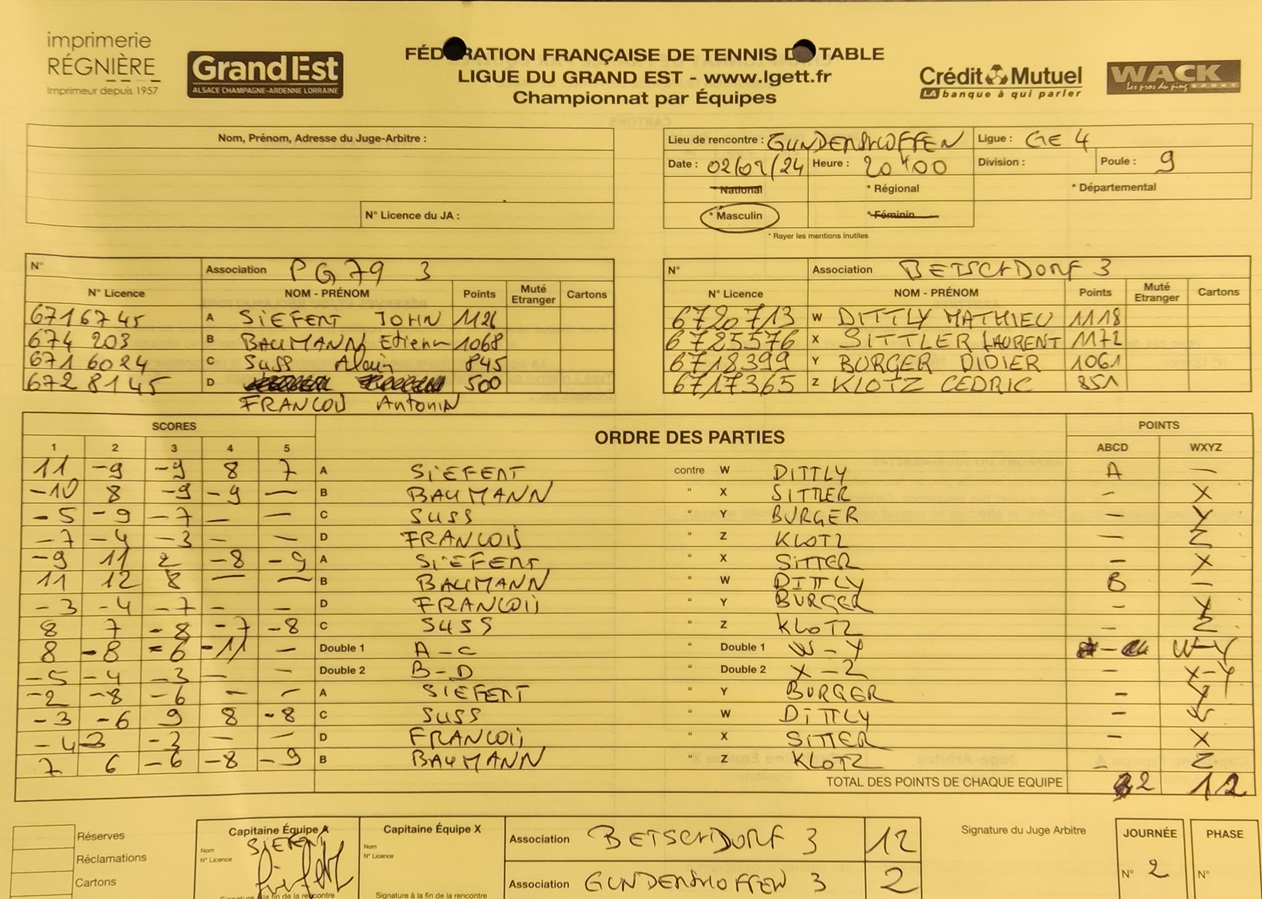 imprimerie
RÉGNIÈRE
Imprimeur depuis 1957
GrandEst
ALSACE CHAMPAGNE-ARDENNE LORRAINE
FÉDÉRATION FRANÇAISE DE TENNIS DE TABLE
LIGUE DU GRAND EST - www.lgett.fr
Championnat par Équipes
Crédit Mutuel
LA banque à qui parler
WACK
Les pros du ping SPORT
Nom, Prénom, Adresse du Juge-Arbitre :
N° Licence du JA :
Lieu de rencontre : GUNDERSHOFFEN Ligue : GE 4
Date : 02/02/24 Heure : 20H00 Division : Poule : 9
* National * Régional * Départemental
* Masculin * Féminin
* Rayer les mentions inutiles
N° Association PG79 3
N° Licence NOM - PRÉNOM Points Muté Etranger Cartons
6716745 A SIEFERT JOHN 1126
674 203 B BAUMANN Etienne 1068
671 6024 C SUSS Alain 845
672 8145 D 500
FRANCOIS Antonin
N° Association BETSCHDORF 3
N° Licence NOM - PRÉNOM Points Muté Etranger Cartons
6720713 W DITTLY MATHIEU 1118
6725576 X SITTLER LAURENT 1172
6718399 Y BURGER DIDIER 1061
6717365 Z KLOTZ CEDRIC 851
SCORES ORDRE DES PARTIES POINTS
1 2 3 4 5 ABCD WXYZ
11 -9 -9 8 7 A SIEFERT contre W DITTLY A –
-10 8 -9 -9 – B BAUMANN " X SITTLER – X
-5 -9 -7 – – C SUSS " Y BURGER – Y
-7 -4 -3 – – D FRANCOIS " Z KLOTZ – Z
-9 11 2 -8 -9 A SIEFERT " X SITTER – X
11 12 8 – – B BAUMANN " W DITTLY B –
-3 -4 -7 – – D FRANCOIS " Y BURGER – Y
8 7 -8 -7 -8 C SUSS " Z KLOTZ – Z
8 -8 -6 -11 – Double 1 A-C " Double 1 W-Y – W-Y
-5 -4 -3 – – Double 2 B-D " Double 2 X-Z – X-Y
-2 -8 -6 – – A SIEFERT " Y BURGER – Y
-3 -6 9 8 -8 C SUSS " W DITTLY – W
-4 -3 -3 – – D FRANCOIS " X SITTER – X
7 6 -6 -8 -9 B BAUMANN " Z KLOTZ – Z
TOTAL DES POINTS DE CHAQUE EQUIPE 2 12
Réserves
Réclamations
Cartons
Capitaine Équipe A
Nom SIEFERT
N° Licence
Signature à la fin de la rencontre
Capitaine Équipe X
Nom
N° Licence
Signature à la fin de la rencontre
Association BETSCHDORF 3 12
Association GUNDERSHOFFEN 3 2
Signature du Juge Arbitre
JOURNÉE
N° 2
PHASE
N°